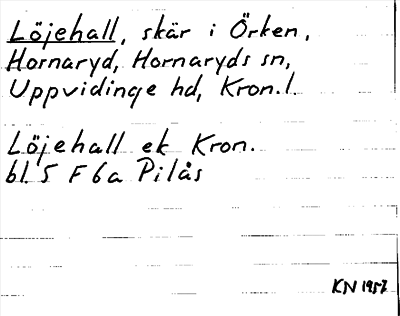 Löjehall, skär i Örken,
Hornaryd, Hornaryds sn,
Uppvidinge hd, Kron.l.
Löjehall ek Kron.
bl. 5 F 6a Pilås
KN 1957